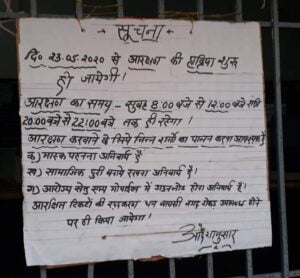 सूचना
दि० 23-05-2020 से आरक्षण की सुविधा शुरू
हो जायेगी।
आरक्षण का समय - सुबह 8:00 बजे से 12:00 बजे रात्रि
20:00 बजे से 22:00 बजे तक ही रहेगा।
आरक्षण करवाने के लिये निम्न शर्तों का पालन करना आवश्यक है
क) मास्क पहनना अनिवार्य है।
ख) सामाजिक दूरी बनाये रखना अनिवार्य है।
ग) आरोग्य सेतु एप्प मोबाईल में डाउनलोड होना अनिवार्य है।
आरक्षित टिकटों की रद्दकरण धन वापसी उपलब्ध होने
पर ही किया जायेगा।
आदेशानुसार